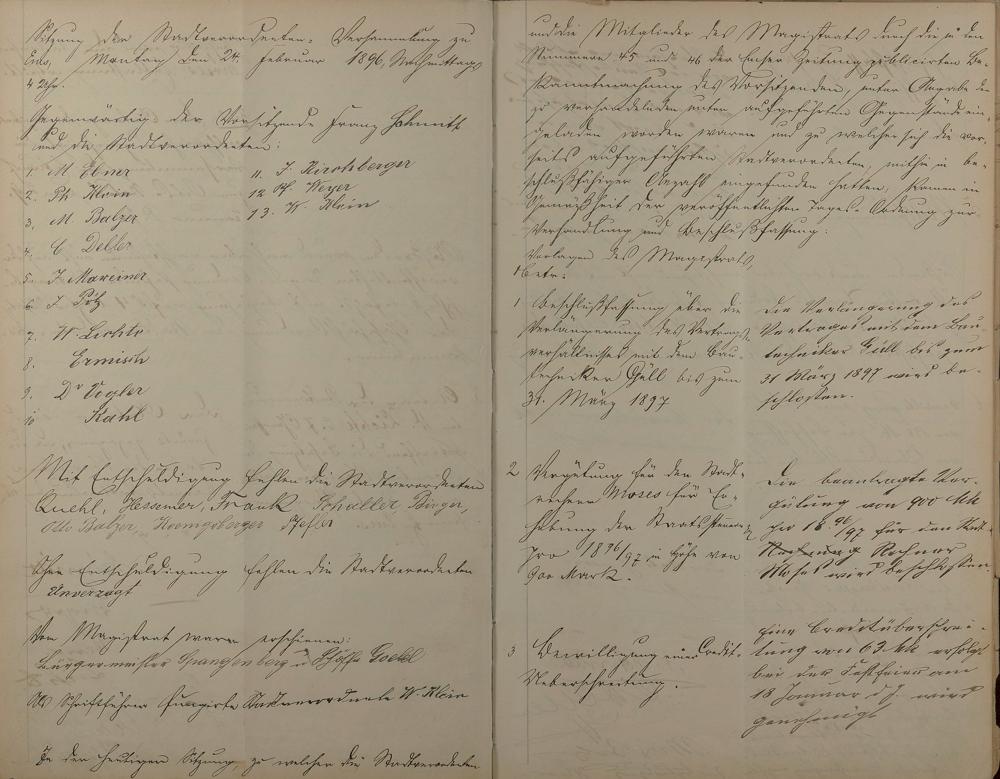 Sitzung der Stadtverordneten-Versammlung zu
Ems, Montag den 24. Februar 1896, Nachmittags
4 Uhr.
Gegenwärtig der Vorsitzende Franz Schmitt
und die Stadtverordneten:
1. M. Ebner
2. Ph. Klein
3. M. Balzer
4. C. Deller
5. J. Mareiner
6. J. Pötz
7. W. Lechte
8. Ermisch
9. Dr Vogler
10 Kahl
11. J. Kirchberger
12 Ph. Weyer
13. W. Klein
Mit Entschuldigung fehlen die Stadtverordneten
Quehl, Hessemer, Frank, Schaller, Binger,
Otto Balzer, Koenigsberger Pfeffer
Ohne Entschuldigung fehlen die Stadtverordneten
Unverzagt
Vom Magistrat waren erschienen:
Bürgermeister Spangenberg u Schöffe Goebel
Als Schriftführer fungirte Stadtverordnete W. Klein
In der heutigen Sitzung, zu welcher die Stadtverordneten
und die Mitglieder des Magistrats durch die in den
Nummern 45 und 46 der Emser Zeitung publicirten Be-
kanntmachung des Vorsitzenden, unter Angabe der
zu verhandelnden unten aufgeführten Gegenstände ein-
geladen worden waren und zu welcher sich die vor-
seits aufgeführten Stadtverordneten, mithin in be-
schlußfähiger Anzahl eingefunden hatten, kamen in
Gemäßheit der veröffentlichten Tages-Ordnung zur
Verhandlung und Beschlußfassung:
Vorlagen des Magistrats,
betr:
1 Beschlußfassung über die
Verlängerung des Vertrags-
verhältnisses mit dem Bau-
techniker Güll bis zum
31. März 1897
Die Verlängerung des
Vertrages mit dem Bau-
techniker Güll bis zum
31 März 1897 wird be-
schlossen.
2 Vergütung für den Stadt-
rechner Moses für Er-
hebung der Staatssteuern
pro 1896/97 in Höhe von
900 Mark.
Die beantragte Ver-
gütung von 900 Mk
per 1896/97 für den Stadt-
Rechner
Moses wird beschlossen
3 Bewilligung einer Credit-
Ueberschreitung.
Eine Creditüberschrei-
tung von 63. Mk erfolgt
bei der Festfeier am
18 Januar d. J. wird
genehmigt